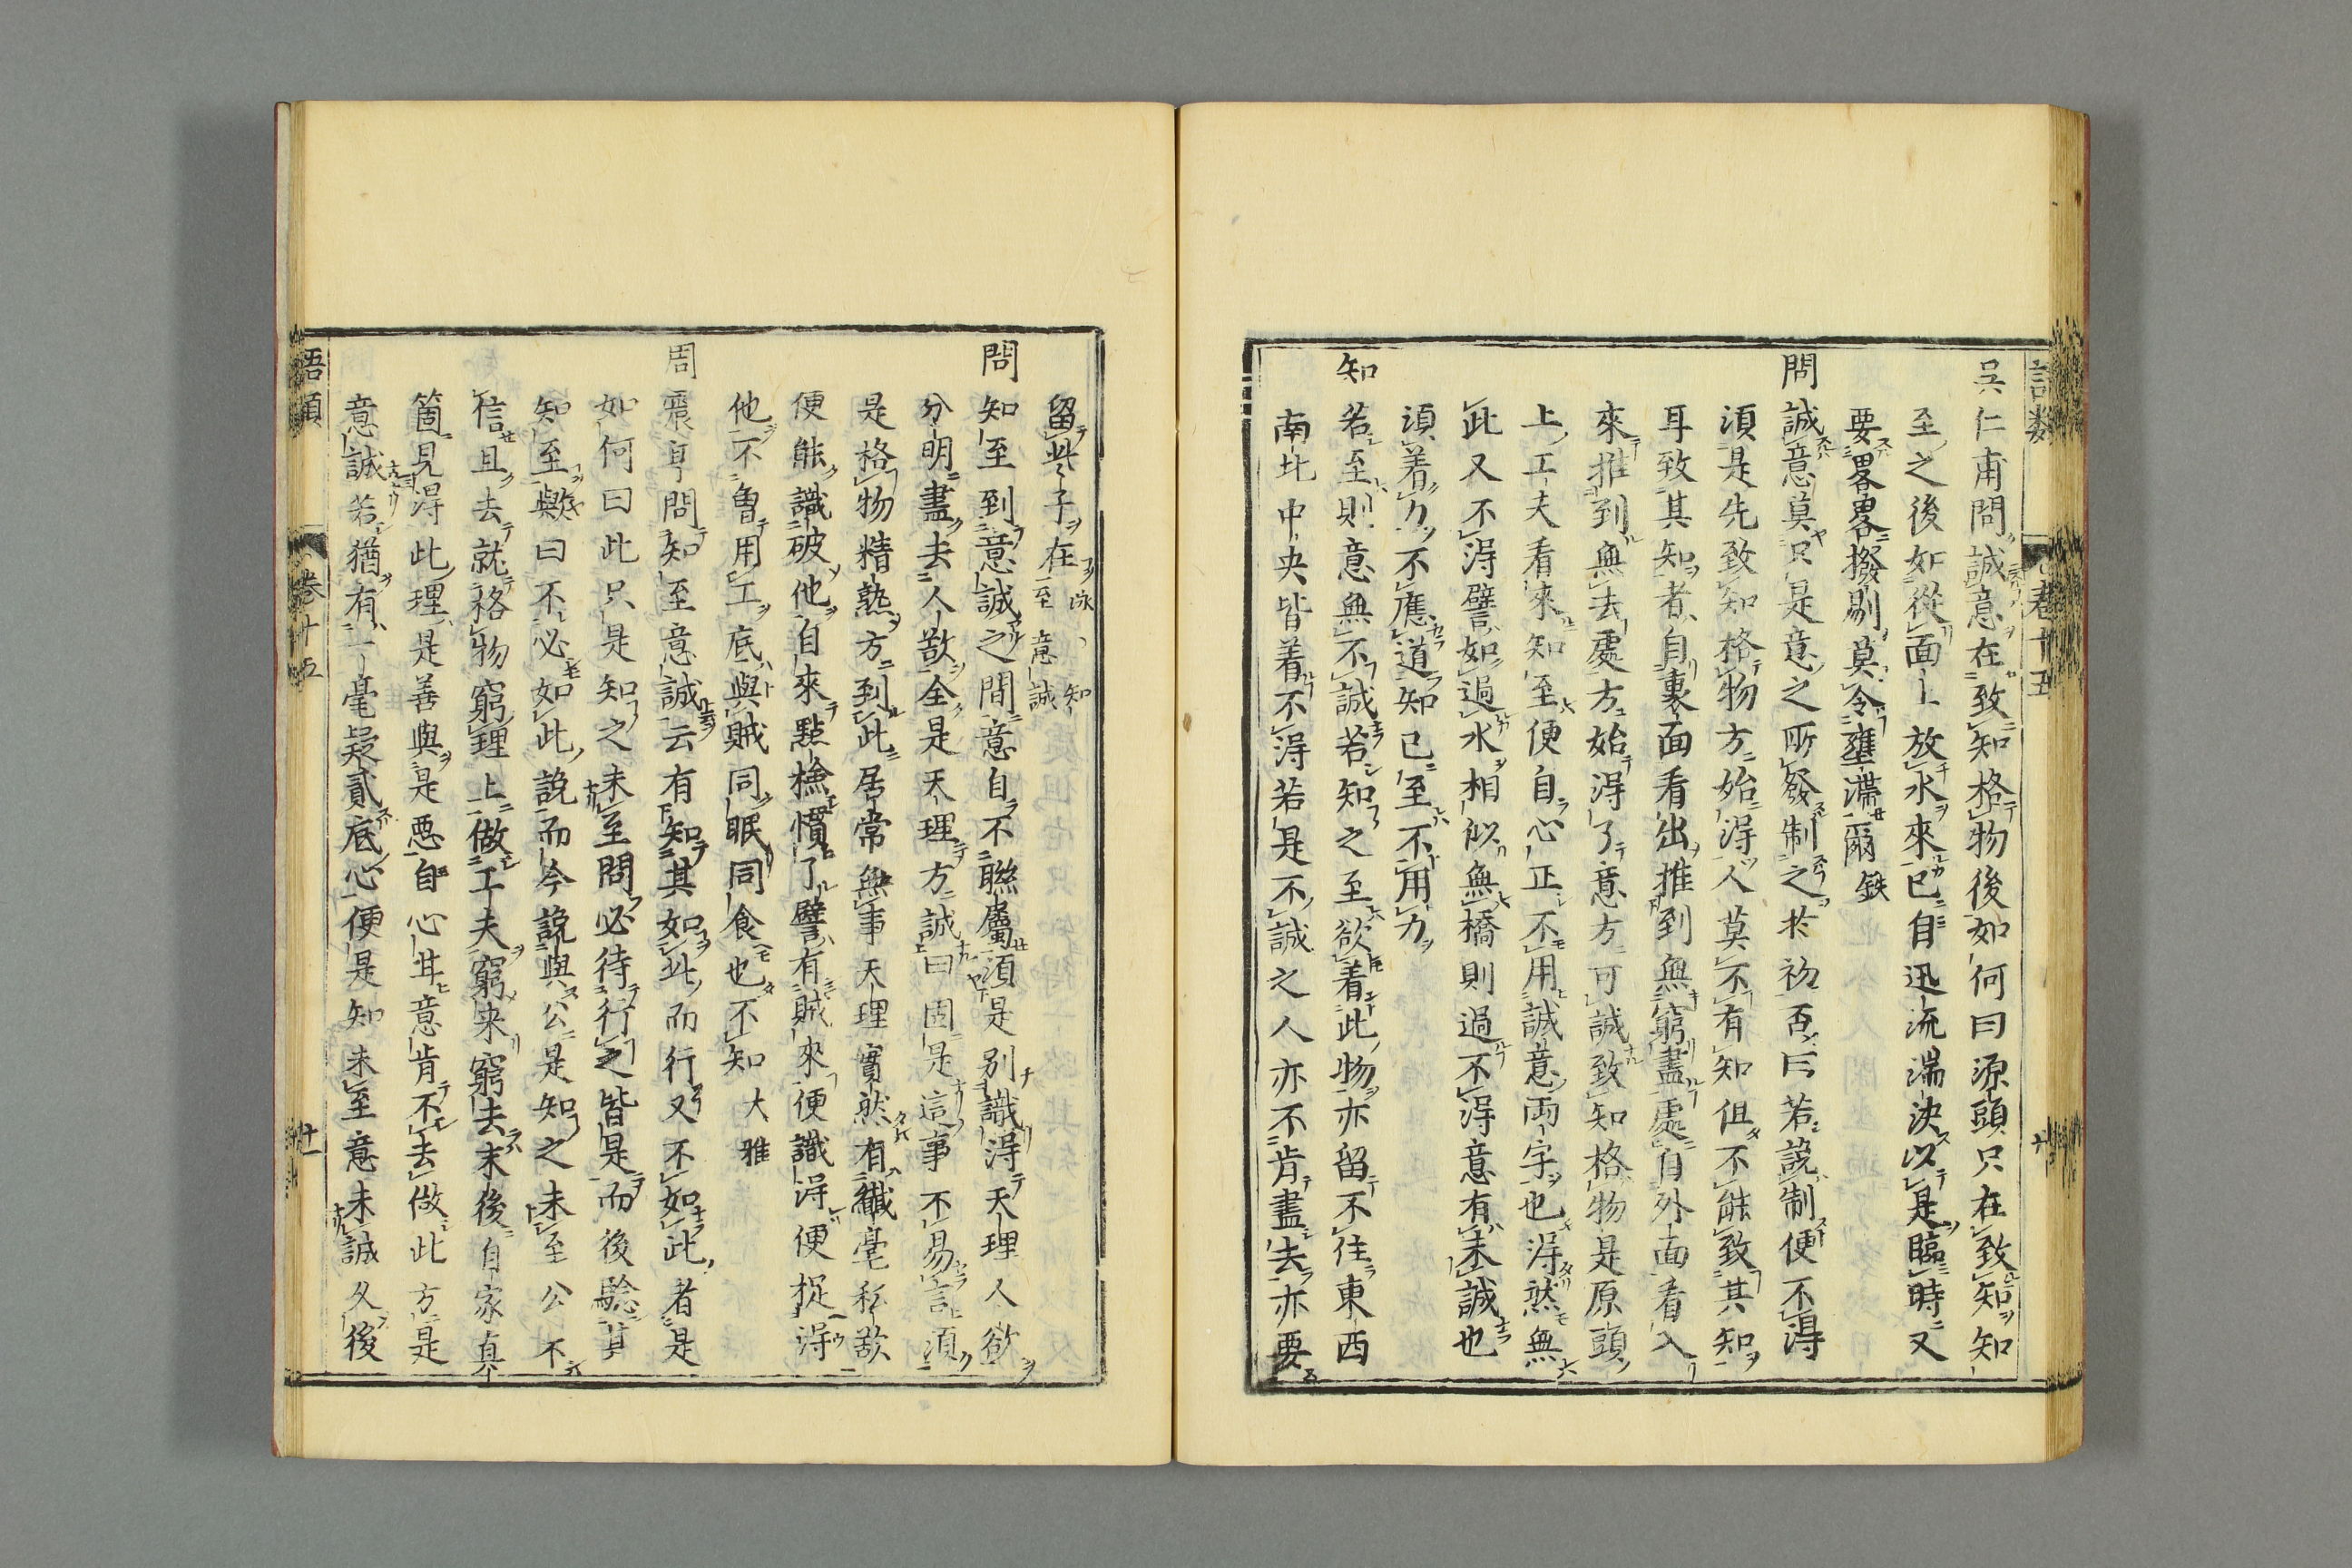 吳仁甫問誠意在致知格物後如何曰源頭只在致知知
至之後如從面上放水來已自迅流湍決以是臨時又
要畧畧撥剔莫令壅滯爾銖
問誠意莫只是意之所發制之於初否曰若說制便不得
須是先致知格物方始得人莫不有知但不能致其知
耳致其知者自裏面看出推到無窮盡處自外面看入
來推到無去處方始得了意方可誠致知格物是原頭
上工夫看來知至便自心正不用誠意兩字也得然無
此又不得譬如過水相似無橋則過不得意有未誠也
須着力不應道知已至不用力
知若至則意無不誠若知之至欲着此物亦留不住東西
南北中央皆着不得若是不誠之人亦不肯盡去亦要
留些子在 泳 知至意誠
問知至到意誠之間意自不聯屬須是別識得天理人欲
分明盡去人欲全是天理方誠曰固是這事不易言須
是格物精熟方到此居常無事天理實然有纖毫私欲
便能識破他自來點檢慣了譬有賊來便識得便捉得
他不曾用工底與賊同眠同食也不知 大雅
周震亨問知至意誠云有知其如此而行又不如此者是
如何曰此只是知之未至問必待行之皆是而後驗其
知至歟曰不必如此說而今說與公是知之未至公不
信且去就格物窮理上做工夫窮來窮去末後自家真
箇見得此理是善與是惡自心甘意肯不去做此方是
意誠若猶有一毫疑貳底心便是知未至意未誠久後
語類 卷十五 廿一